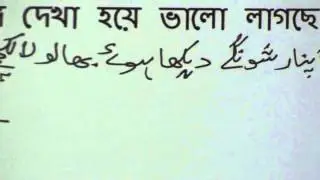 দেখা হয়ে ভালো লাগছে
پنار شونگے دیکھا ہوئے بھالو لا